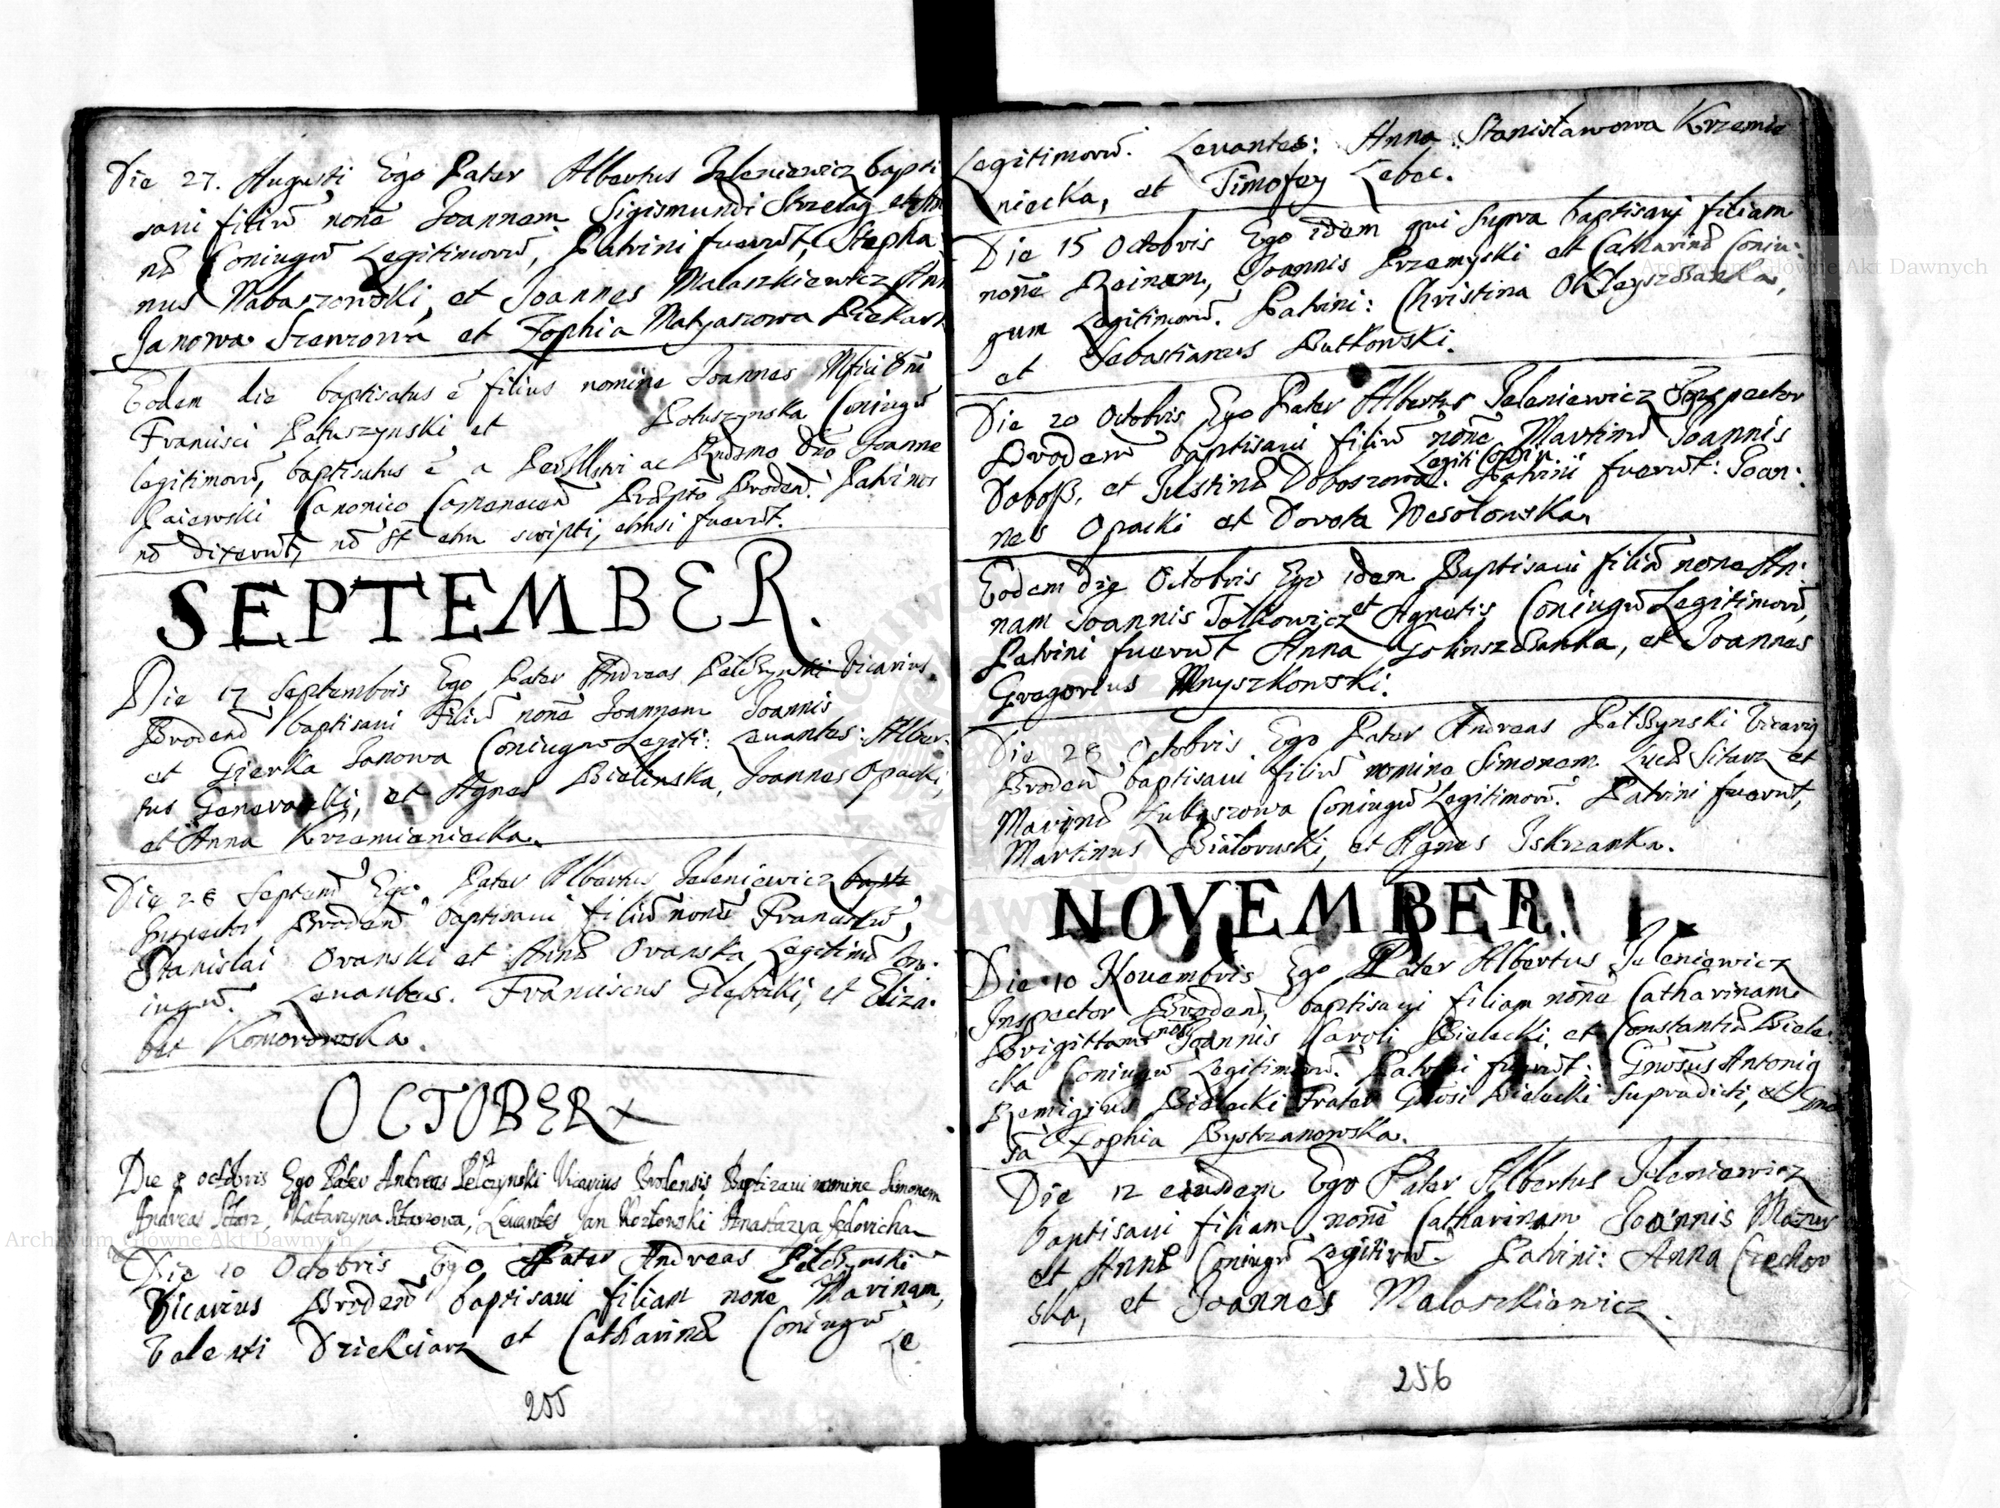 Die 27. Augusti Ego Pater Albertus Jeleniewicz bapti
saui filiũ noñe Joannem Sigismundi Strzelag et
nã Coniugũ Legitimorũ, Patrini fuerũt, Stepha
nus Nabaszowski, et Joannes Malaszkiewicz
Janowa Szewcowa et Zophia Matyaszowa Piekark
Eodem die baptisatus ẽ filius nomine Joannes
Francisci Patuszynski et Patuszynska Coniugũ
legitimorũ, baptisatus ẽ a Perillustri ac Rndsmo Dño Joanne
Gaiewski Canonico Camenecen Præpto Broden. Patrinos
nõ dixerũt, nõ st etm scripti, etmsi fuerũt.
SEPTEMBER.
Die 17 Septembris Ego Pater Andreas Pelczynski Vicarius
Brodenũ baptisaui Filiũ noñe Joannem Joannis
et Gierka Janowa Coniugũ Legiti: Leuantes: Alber
tus Generalski, et Agnes Bielinska, Joannes Opacki,
et Anna Krzemieniecka.
Die 28 Septemb Ego Pater Albertus Jeleniewicz bapti
Inspector Broden baptisaui filiũ noñe Franciscũ,
Stanislai Oranski et Anna Oranska Legitimũ Con
iugũ. Leuantes. Franciscus Glębocki, et Eliza
bet Komorowska.
OCTOBER
Die 8 octobris Ego Pater Andreas Pelczynski Vicarius Brodensis Baptizaui nomine Simonem
Andreas Sitarz, Katarzyna Sitarzowa, Leuantes Jan Kozlowski Anastazya Fedoricha
Die 10 Octobris Ego Pater Andreas Pelczynski
Vicarius Broden baptisaui filiam noñe Marinam,
Valenti Dziekciarz et Catharinæ Coniugũ Le
255
Legitimorũ. Leuantes: Anna Stanisławowa Krzemie
niecka, et Timofey Lebec.
Die 15 Octobris Ego idem qui supra baptisaui filiam
noñe Reinam, Joannis Przemyski et Catharinæ Coniu
gum Legitimorũ. Patrini: Christina
et Sebastianus Rutkowski.
Die 20 Octobris Ego Pater Albertus Jeleniewicz Inspector
Broden baptisaui filiũ noñe Martinũ Joannis
Legiti Coniu
Doboß, et Justina Doboszowa. Patrini fuerũt: Joan:
nes Opacki et Dorota Wesołowska.
Eodem die Octobris Ego idem Baptisaui filiã noñe An:
nam Joannis Tolkowicz et Agnetis Coniugũ Legitimorũ,
Patrini fuerũt Anna et Joannes
Gregorius Mnyszkowski.
Die 28 Octobris Ego Pater Andreas Pelczynski Vicarius
Broden baptisaui filiũ nomine Simonem Lucæ Sitarz et
Marinæ Lukaszowa Coniugũ Legitimorũ. Patrini fuerũt,
Martinus Białoruski, et Agnes Iskrzanka.
NOVEMBER.
Die 10 Nouembris Ego Pater Albertus Jeleniewicz
Inspector Broden, baptisaui filiam noñe Catharinam
Brigittam Joannis Karoli Bielecki, et Constantiæ Biele
cka Coniugũ Legitimorũ. Patrini fuerũt: Gnosus Antonig
Remigius Bielecki Frater Gnosi Bielecki Supradicti, et Gno
sa Zophia Bystrzanowska.
Die 12 eiusdem Ego Pater Albertus Jeleniewicz
baptisaui filiam noñe Catharinam Joannis Mazur
et Annæ Coniugũ Legitimũ. Patrini: Anna Czechow
ska, et Joannes Malaszkiewicz.
256
Archiwum Główne Akt Dawnych
Archiwum Główne Akt Dawnych